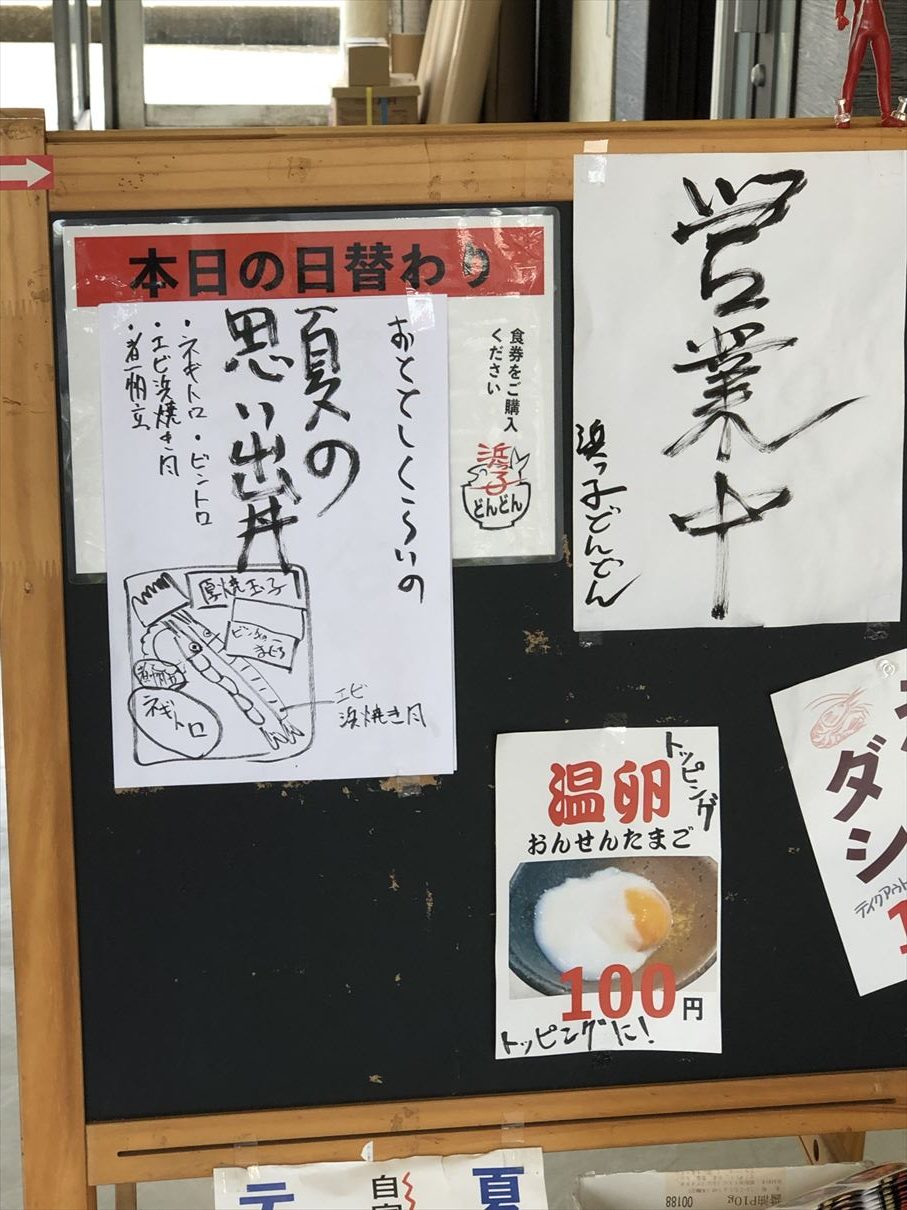 本日の日替わり
食券をご購入
ください
浜っ子
どんどん
おととしくらいの
夏の
思い出丼
・ネギトロ ・ビントロ
・エビ浜焼き風
・煮帆立
厚焼玉子
ビンチョウ
まぐろ
煮帆立
ネギトロ
エビ
浜焼き風
営業中
浜っ子どんどん
トッピング
温卵
おんせんたまご
100円
トッピングに!
ダシ
テイクアウト
1
夏
自家
テ
醤油P10g
00188